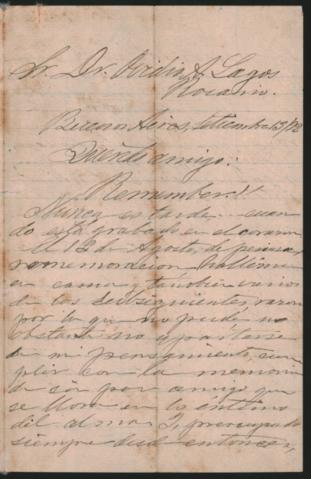 Sr. Dr. Ovidio A. Lagos
Rosario.
Buenos Aires, Setiembre 13/
Querido amigo:
Remember!!
Nunca es tarde cuan
do está grabado en el corazon
el 13 de Agosto, de
en cama, tambien varios
de los dias siguientes, razon
por la que no pude, no
obstante no apartarse
de mi pensamiento, cum
plir con la memoria
de ese por amigo que
se llora en lo íntimo
del alma. I, preocupado
siempre desde entonces,